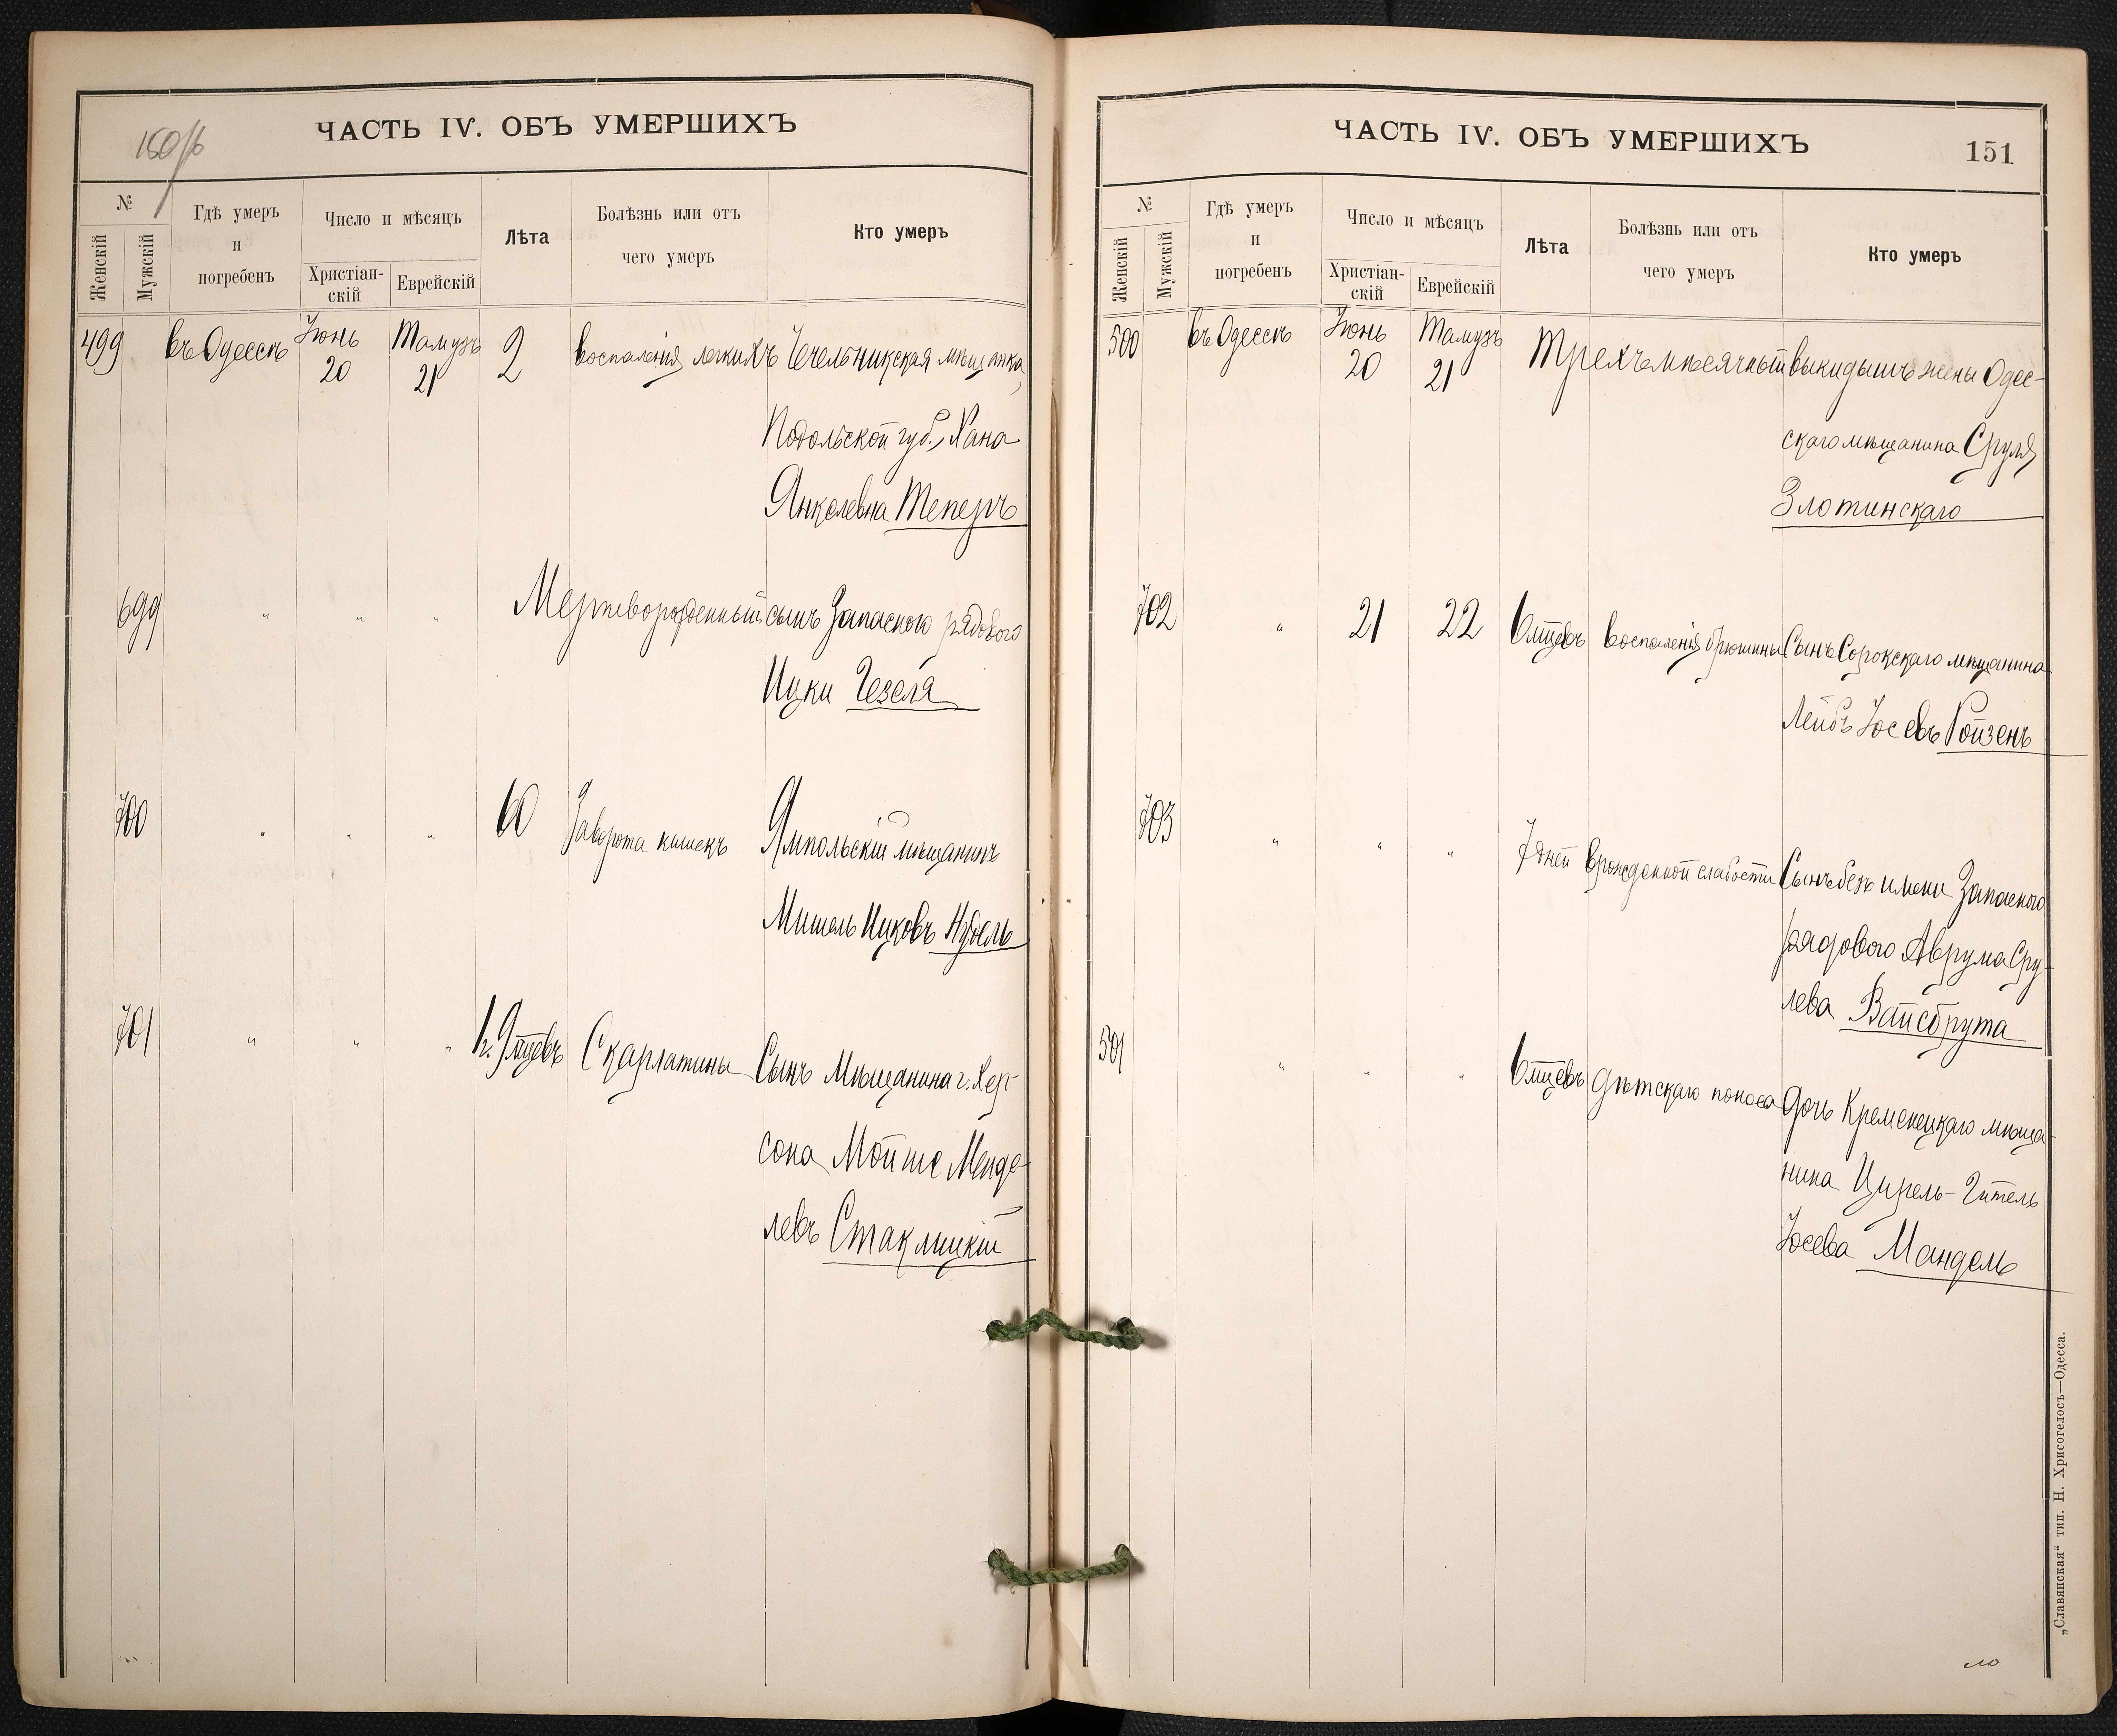 150 об
ЧАСТЬ IV. ОБЪ УМЕРШИХЪ
№
Женскій
Мужскій
Гдѣ умеръ
и
погребенъ
Число и мѣсяцъ
Христіан-
скій
Еврейскій
Лѣта
Болѣзнь или отъ
чего умеръ
Кто умеръ
499 въ Одессѣ Іюнь 20 Тамузъ 21 2 воспаленія легкихъ Чечельникская мѣщанка,
Подольской губ., Хана
Янкелевна Теперъ
699 " " " Мертворожденный сынъ Запасного рядового
Ицки Гезеля
700 " " " 60 Заворота кишекъ Ямпольскій мѣщанинъ
Мишель Ицковъ Нудель
701 " " " 1 г. 9 мцевъ Скарлатины Сынъ Мѣщанина г. Хер-
сона Мойше Менде-
левъ Стаклицкій
ЧАСТЬ IV. ОБЪ УМЕРШИХЪ
151
№
Женскій
Мужскій
Гдѣ умеръ
и
погребенъ
Число и мѣсяцъ
Христіан-
скій
Еврейскій
Лѣта
Болѣзнь или отъ
чего умеръ
Кто умеръ
500 въ Одессѣ Іюнь 20 Тамузъ 21 Трехъмѣсячный выкидышъ жены Одес-
скаго мѣщанина Сруля
Злотинскаго
702 " 21 22 6 мцевъ воспаленія брюшины Сынъ Сорокскаго мѣщанина
Лейбъ Іосевъ Ройзенъ
703 " " " 7 дней врожденной слабости Сынъ безъ имени Запасного
рядового Аврума Сру-
лева Вайсбрута
501 " " " 6 мцевъ дѣтскаго поноса Дочь Кременецкаго мѣща-
нина Цирель-Гитель
Іосева Мандель
„Славянская“ тип. Н. Хрисогелосъ—Одесса.